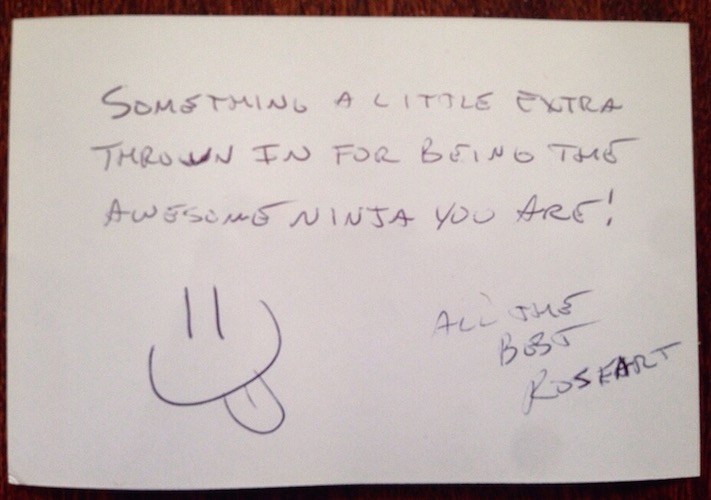 SOMETHING A LITTLE EXTRA
THROWN IN FOR BEING THE
AWESOME NINJA YOU ARE!
ALL THE
BEST
ROSEART